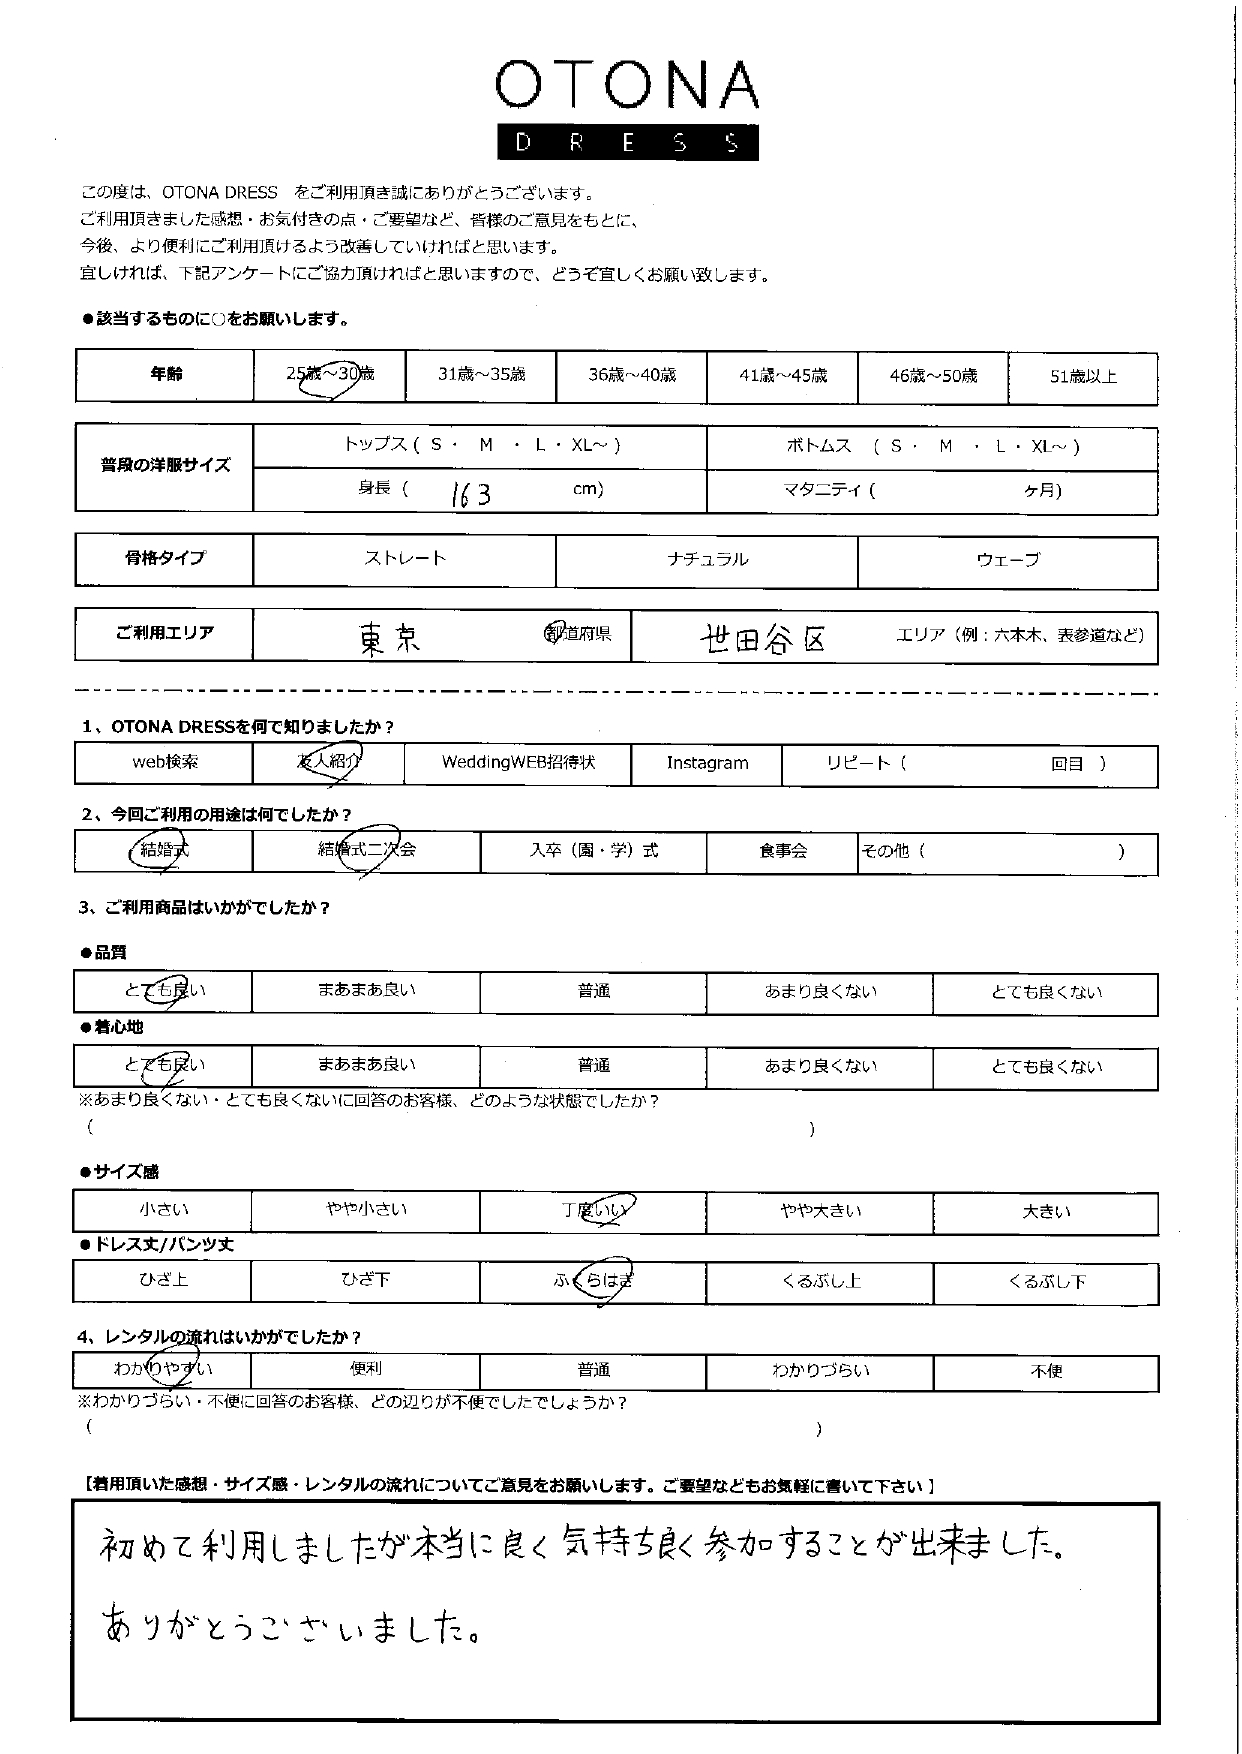 OTONA
DRESS
この度は、OTONA DRESS をご利用頂き誠にありがとうございます。
ご利用頂きました感想・お気付きの点・ご要望など、皆様のご意見をもとに、
今後、より便利にご利用頂けるよう改善していければと思います。
宜しければ、下記アンケートにご協力頂ければと思いますので、どうぞ宜しくお願い致します。
●該当するものに○をお願いします。
年齢 25歳～30歳 31歳～35歳 36歳～40歳 41歳～45歳 46歳～50歳 51歳以上
普段の洋服サイズ
トップス ( S ・ M ・ L ・ XL～ ) ボトムス ( S ・ M ・ L ・ XL～ )
身長 ( 163 cm) マタニティ ( ケ月)
骨格タイプ ストレート ナチュラル ウェーブ
ご利用エリア 東京 都道府県 世田谷区 エリア（例：六本木、表参道など）
1、OTONA DRESSを何で知りましたか？
web検索 友人紹介 WeddingWEB招待状 Instagram リピート（ 回目 ）
2、今回ご利用の用途は何でしたか？
結婚式 結婚式二次会 入卒（園・学）式 食事会 その他（ ）
3、ご利用商品はいかがでしたか？
●品質
とても良い まあまあ良い 普通 あまり良くない とても良くない
●着心地
とても良い まあまあ良い 普通 あまり良くない とても良くない
※あまり良くない・とても良くないに回答のお客様、どのような状態でしたか？
( )
●サイズ感
小さい やや小さい 丁度いい やや大きい 大きい
●ドレス丈/パンツ丈
ひざ上 ひざ下 ふくらはぎ くるぶし上 くるぶし下
4、レンタルの流れはいかがでしたか？
わかりやすい 便利 普通 わかりづらい 不便
※わかりづらい・不便に回答のお客様、どの辺りが不便でしたでしょうか？
( )
【着用頂いた感想・サイズ感・レンタルの流れについてご意見をお願いします。ご要望などもお気軽に書いて下さい 】
初めて利用しましたが本当に良く気持ち良く参加することが出来ました。
ありがとうございました。